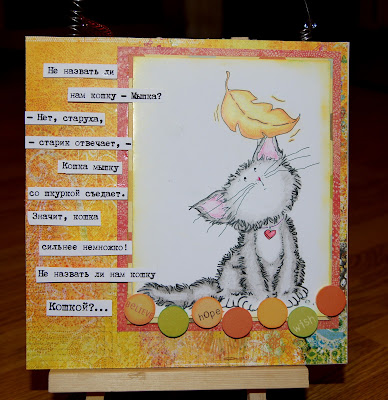 Не назвать ли
нам кошку – Мышка?
– Нет, старуха,
– старик отвечает, –
Кошка мышку
со шкуркой съедает.
Значит, кошка
сильнее немножко!
Не назвать ли нам кошку
Кошкой?...
hope
wish